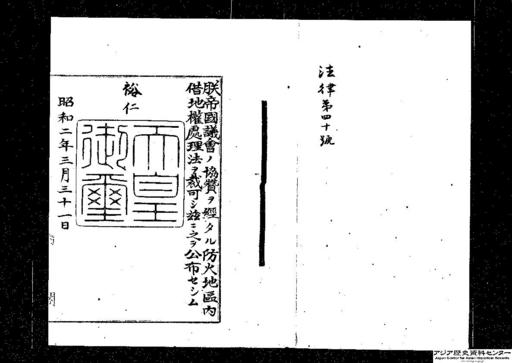 法律第四十號
朕帝國議會ノ協贊ヲ經タル防火地區内
借地權處理法ヲ裁可シ茲ニ之ヲ公布セシム
裕仁
天皇
御璽
昭和二年三月三十一日
アジア歴史資料センター
Japan Center for Asian Historical Records